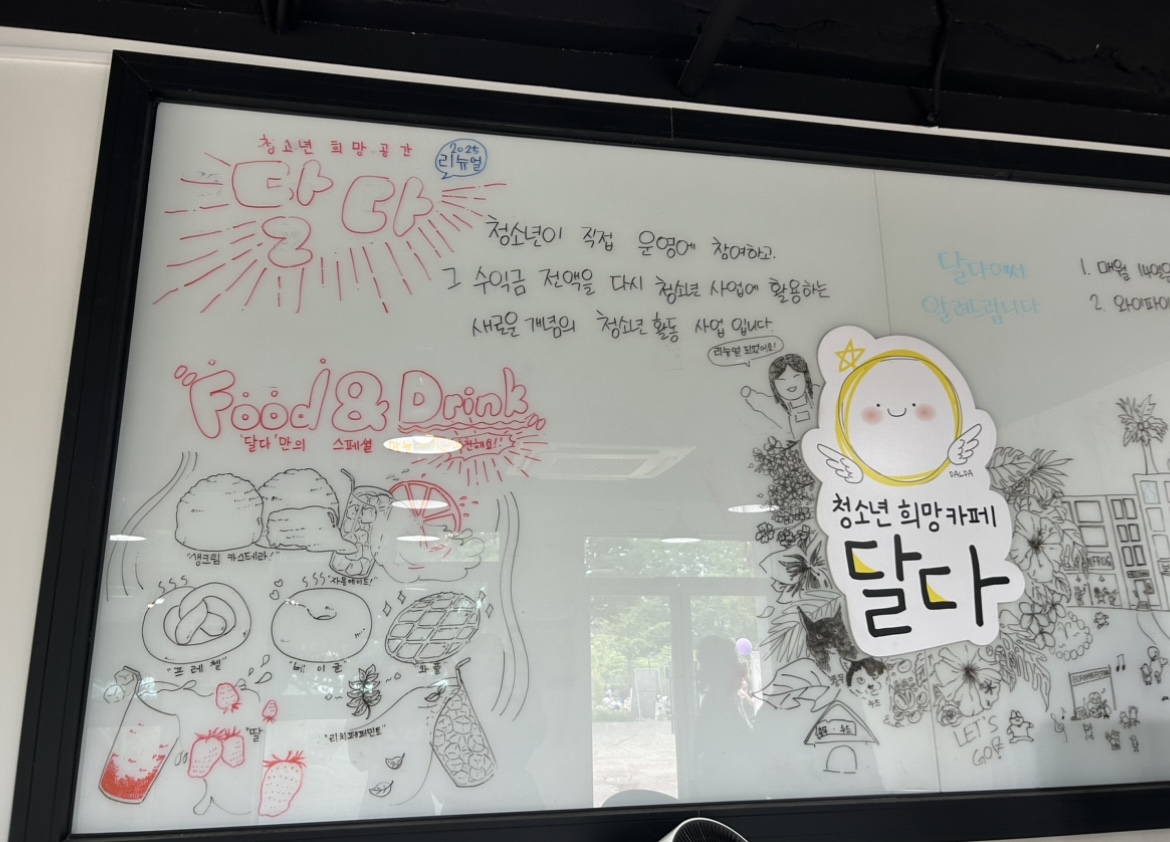 청소년 희망공간
2025
리뉴얼
달다
청소년이 직접 운영에 참여하고.
그 수익금 전액을 다시 청소년 사업에 활용하는
새로운 개념의 청소년 활동 사업 입니다.
달다에서
알려드립니다
1. 매월 14일은
2. 와이파이
Food & Drink
'달다'만의 스페셜
"생크림 카스테라!"
"자몽에이드!"
"프레첼"
"베이글"
"와플"
"딸
"리치페퍼민트"
리뉴얼 되었어요!
DALDA
청소년 희망카페
달다
LET'S
GO!